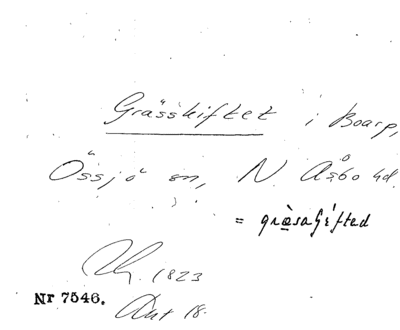 Grässkiftet i Boarp,
Össjö sn, N. Åsbo hd.
= græsaʃifted
1823
Nr 7546.
Akt 18.